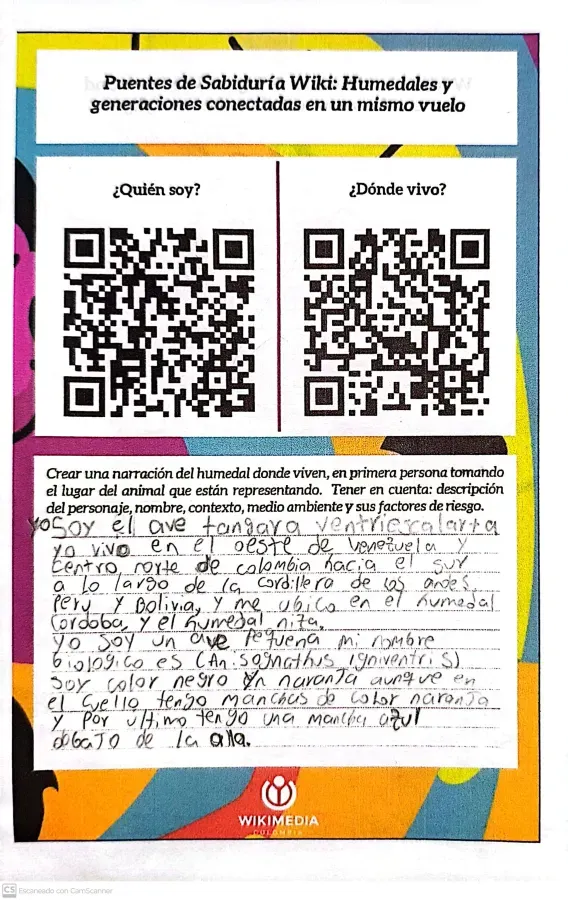 Puentes de Sabiduría Wiki: Humedales y
generaciones conectadas en un mismo vuelo
¿Quién soy?
¿Dónde vivo?
Crear una narración del humedal donde viven, en primera persona tomando
el lugar del animal que están representando. Tener en cuenta: descripción
del personaje, nombre, contexto, medio ambiente y sus factores de riesgo.
yo soy el ave tangara ventriescalarta
yo vivo en el oeste de Venezuela y
centro norte de colombia hacia el sur
a lo largo de la cordillera de los andes,
Perú y Bolivia, y me ubico en el humedal
Cordoba, y el humedal niza.
yo soy un ave Pequeña mi nombre
biologico es (Anisognathus igniventris)
soy color negro yn naranja aunque en
el cuello tengo manchas de color naranja
y por ultimo tengo una mancha azul
dobajo de la alla.
WIKIMEDIA
COLOMBIA
CS Escaneado con CamScanner